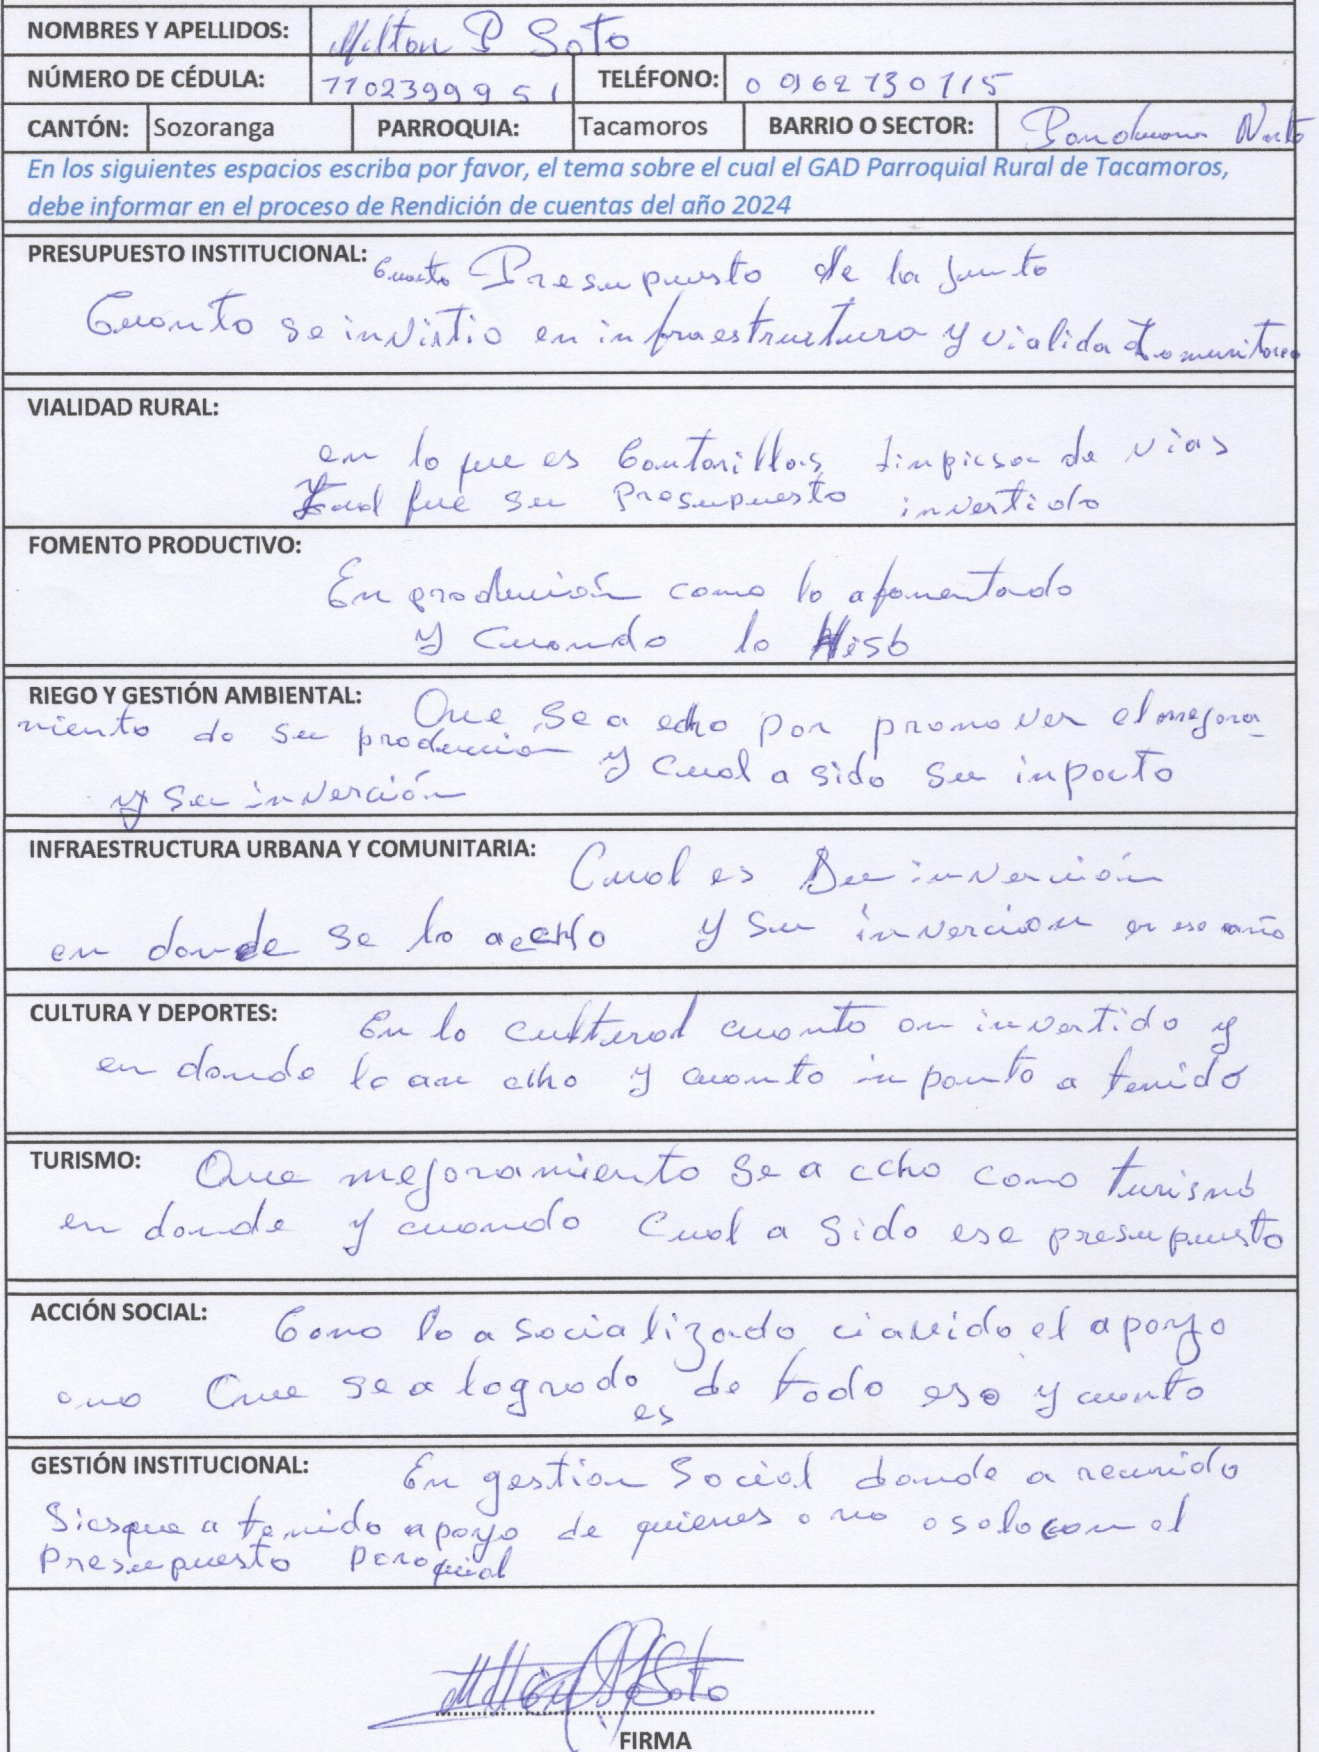 NOMBRES Y APELLIDOS: Milton P Soto
NÚMERO DE CÉDULA: 1102399951 TELÉFONO: 0962730115
CANTÓN: Sozoranga PARROQUIA: Tacamoros BARRIO O SECTOR:
En los siguientes espacios escriba por favor, el tema sobre el cual el GAD Parroquial Rural de Tacamoros,
debe informar en el proceso de Rendición de cuentas del año 2024
PRESUPUESTO INSTITUCIONAL: Cuanto Presupuesto de la junta
Cuanto se invirtio en infraestructura y vialidad
VIALIDAD RURAL:
en lo que es Cantarillas limpiesa de vias
fue su Presupuesto invertido
FOMENTO PRODUCTIVO:
En producción como lo a fomentado
y cuando lo Hiso
RIEGO Y GESTIÓN AMBIENTAL: Que se a echo por promover el mejora-
miento de su produccion y cual a sido su inpacto
y su inverción
INFRAESTRUCTURA URBANA Y COMUNITARIA: Cual es su inverción
en donde se lo a echo y su invercion en ese año
CULTURA Y DEPORTES: En lo cultural cuanto an invertido y
en donde lo an echo y cuanto a tenido
TURISMO: Que mejoramiento se a echo como turismo
en donde y cuando Cual a sido ese presupuesto
ACCIÓN SOCIAL: Como lo a socializado el apoyo
o no Que se a logrado de todo eso y cuanto
es
GESTIÓN INSTITUCIONAL: En gestion Social donde a reunido
Siesque a tenido apoyo de quienes o no o solo con el
Presupuesto Paroquial
FIRMA